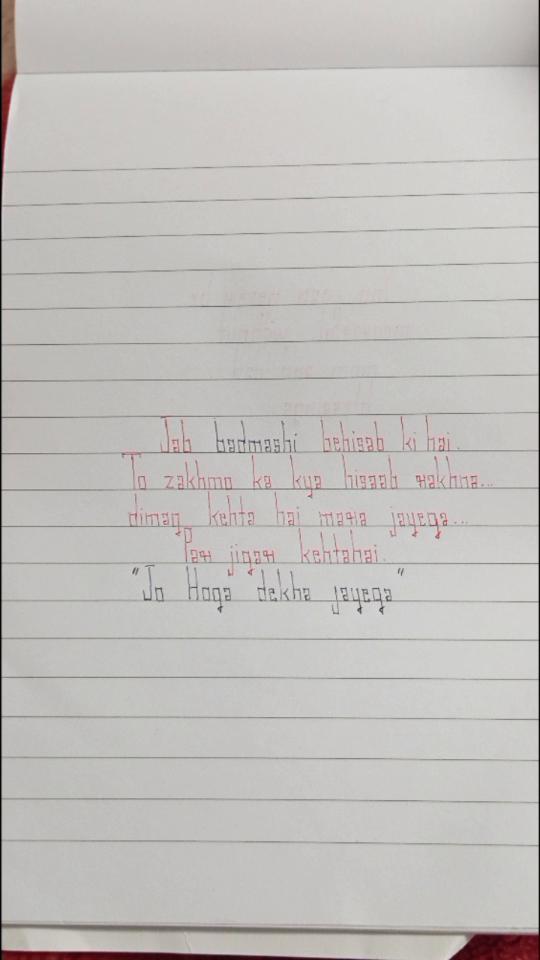 Jab badmashi behisab ki hai.
To zakhmo ka kya hisaab rakhna...
dimag kehta hai mara jayega...
Par jigar kehtahai.
"Jo Hoga dekha jayega"